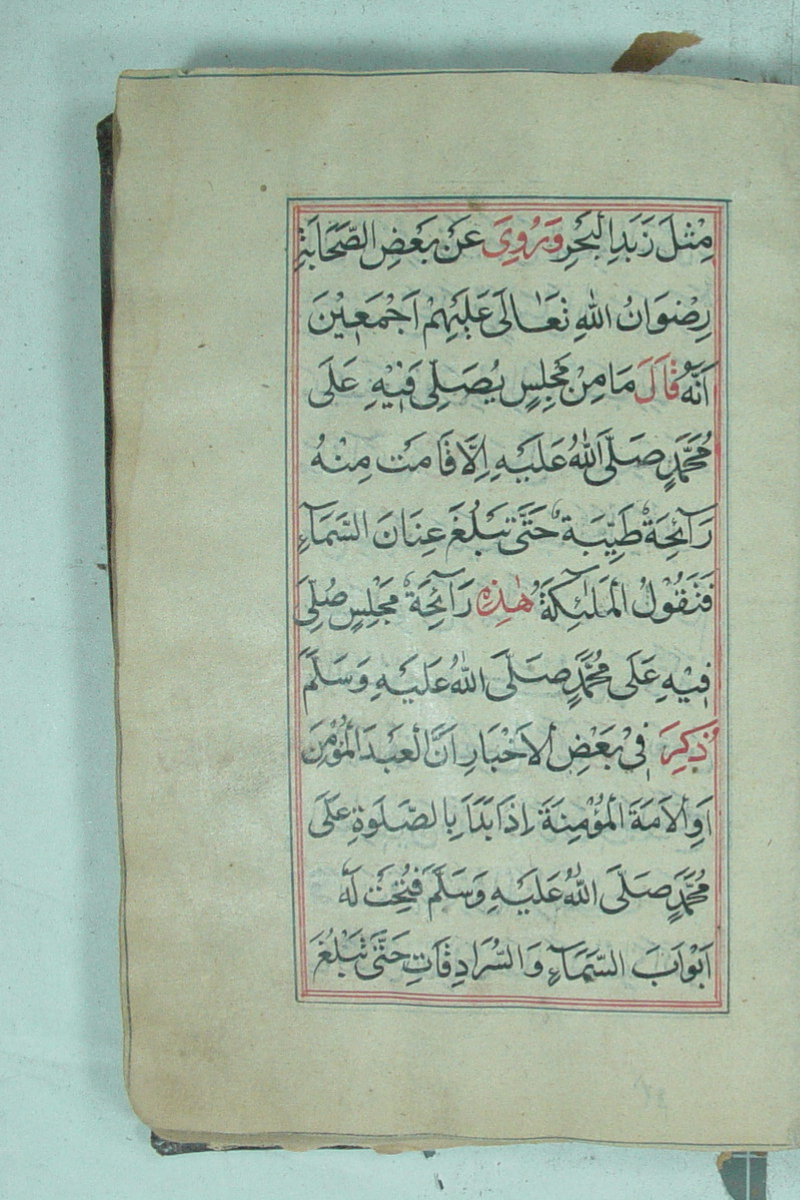 مِثْلَ زَبَدِ الْبَحْرِ وَرُوِيَ عَنْ بَعْضِ الصَّحَابَةِ
رِضْوَانُ اللهِ تَعَالَى عَلَيْهِمْ اَجْمَعِيْنَ
اَنَّهُ قَالَ مَا مِنْ مَجْلِسٍ يُصَلّٰى فِيْهِ عَلَى
مُحَمَّدٍ صَلَّى اللهُ عَلَيْهِ اِلَّا قَامَتْ مِنْهُ
رَآئِحَةٌ طَيِّبَةٌ حَتّٰى تَبْلُغَ عِنَانَ السَّمَآءِ
فَتَقُوْلُ الْمَلٰئِكَةُ هٰذِهٖ رَآئِحَةُ مَجْلِسٍ صُلِّيَ
فِيْهِ عَلَى مُحَمَّدٍ صَلَّى اللهُ عَلَيْهِ وَسَلَّمَ
ذُكِرَ فِيْ بَعْضِ الْاَخْبَارِ اَنَّ الْعَبْدَ الْمُؤْمِنَ
اَوِ الْاَمَةَ الْمُؤْمِنَةَ اِذَا بَدَاَ بِالصَّلٰوةِ عَلَى
مُحَمَّدٍ صَلَّى اللهُ عَلَيْهِ وَسَلَّمَ فُتِحَتْ لَهٗ
اَبْوَابَ السَّمَآءِ وَالسُّرَادِقَاتِ حَتّٰى تَبْلُغَ